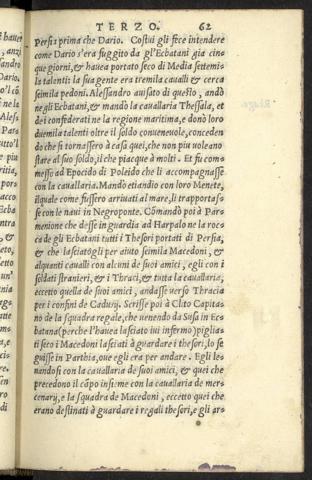 TERZO. 62
Persi: prima che Dario. Costui gli fece intendere
come Dario s'era fuggito da gl'Ecbatani gia cinq
que giorni, & hauea portato seco di Media settemi
la talenti la sua gente era tremila caualli & cerca
seimila pedoni. Alessandro auisato di questo, andò
ne gli Ecbatani, & mandò la cauallaria Thessala, et
dei confederati ne la region maritima, e donò loro
duemila talenti oltre il soldo conueneuole, conceden
do che si tornassero à casa quei, che non piu uoleano
stare al suo soldo, il che piacque à molti. Et fu com
messo ad Epocido di Poleido che li accompagnasse
con la cauallaria. Mandò etiandio con loro Menete,
ilquale come fussero arriuati al mare, li trapportas
se con le naui in Negroponte. Cõmandò poi à Par
menione che desse in guardia ad Harpalo ne la roc
ca de gli Ecbatani tutti i Thesori portati di Persia,
& che lasciatogli per aiuto seimila Macedoni, &
alquanti caualli con alcuni de suoi amici, egli con i
soldati stranieri, & i Thraci, & tutta la cauallaria;
eccetto quella de suoi amici, andasse uerso Thracia
per i confini de Cadusij. Scrisse poi à Clito Capita
no de la squadra regale, che uenendo da Susa in Ecs
batana (perche l'hauea lasciato iui infermo) piglias
ti seco i Macedoni lasciati à guardare i thesori, lo se
guisse in Parthia, oue egli era per andare. Egli le
uandosi con la cauallaria de suoi amici, & quei che
precedeno il cãpo insieme con la cauallaria de mer
cenary, e la squadra de Macedoni, eccetto quei che
erano destinati à guardare i regali thesori, e gli ars